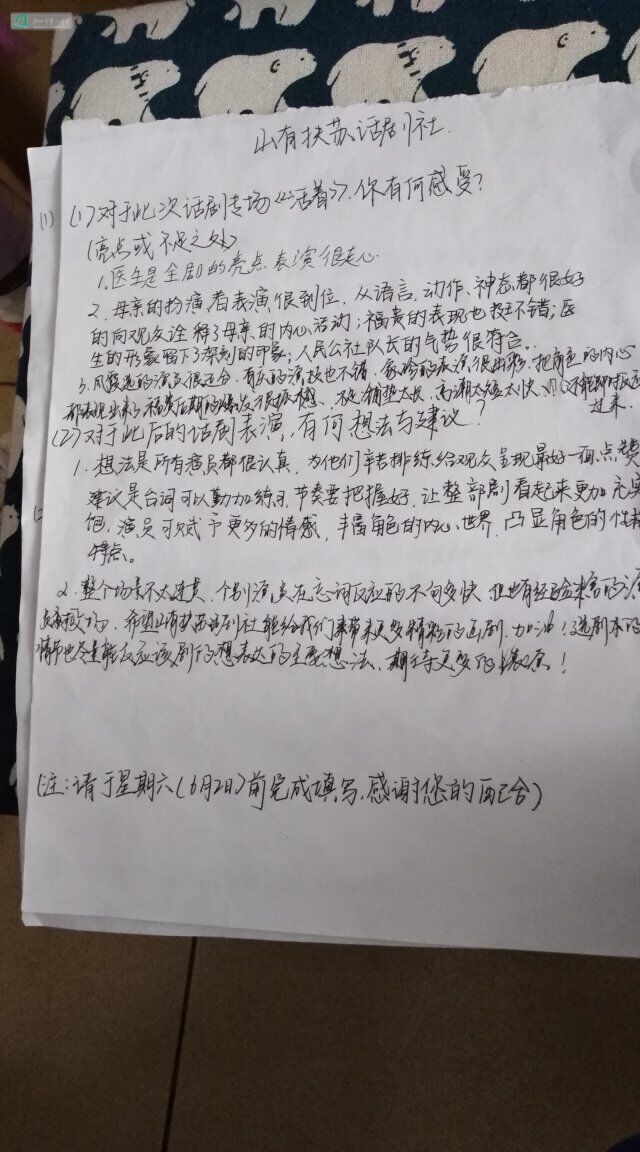 山有扶苏话剧社.
(1) (1)对于此次话剧专场《活着》.你有何感受?
(亮点或不足之处)
1.医生是全剧的亮点 表演很走心.
2.母亲的扮演者表演很到位,从语言,动作、神态都很好
的向观众诠释了母亲的内心活动;福贵的表现也挺不错;医
生的形象留下深刻的印象;人民公社队长的气势很符合.
3.凤霞选的演员很适合.有庆的演技也不错.家珍的表演很出彩.把角色的内心
都表现出来了 福贵后期的爆发很震撼.不足 铺垫太长,高潮太短太快,
过来.
(2)对于此后的话剧表演,有何想法与建议?
1.想法是所有演员都很认真,为他们辛苦排练给观众呈现最好一面点赞
建议是台词可以勤加练习.节奏要把握好,让整部剧看起来更加充实
饱,演员可赋予更多的情感,丰富角色的内心世界.凸显角色的性格
特点。
2.整个场景不太连贯.个别演员在忘词反应的不够快 但也有经验丰富的演
希望山有扶苏话剧社能给我们带来更多精彩的话剧.加油!选剧本的
情节也尽量能反应该剧的想表达的主要想法、期待更多的演员!
(注:请于星期六(6月2日)前完成填写.感谢您的配合)